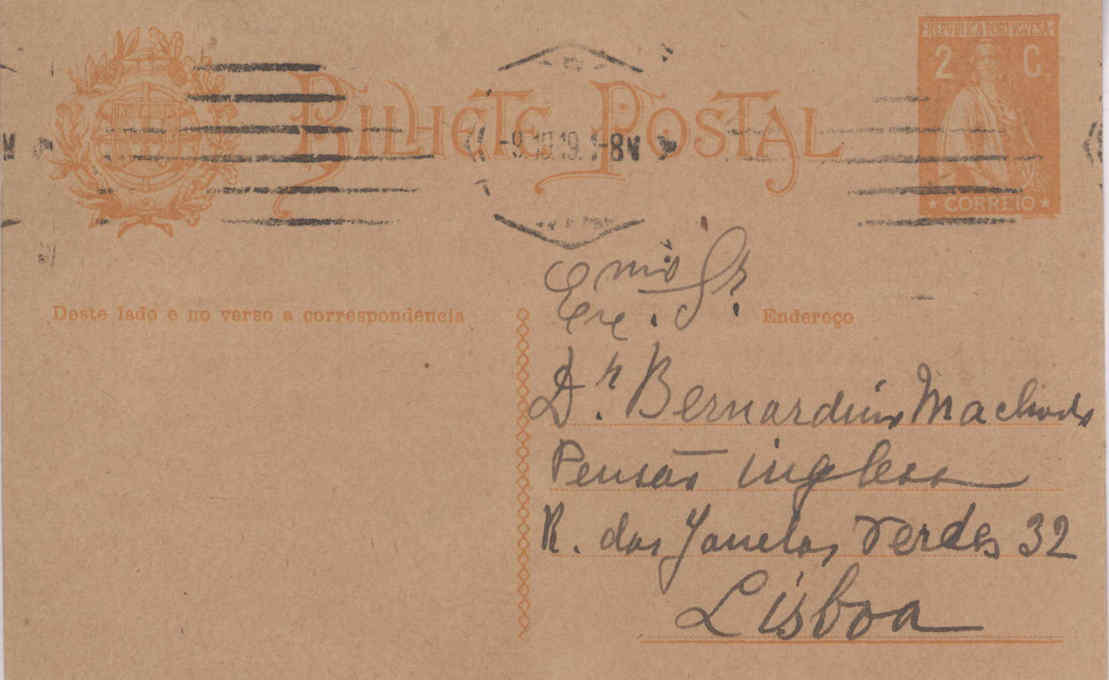 REPUBLICA PORTUGUESA
2 C.
BILHETE POSTAL
-9.10.19. 1-8V
CORREIO
Exc.mo Sr.
Deste lado e no verso a correspondencia
Endereço
Dr. Bernardino Machado
Pensão inglesa
R. das Janelas verdes 32
Lisboa